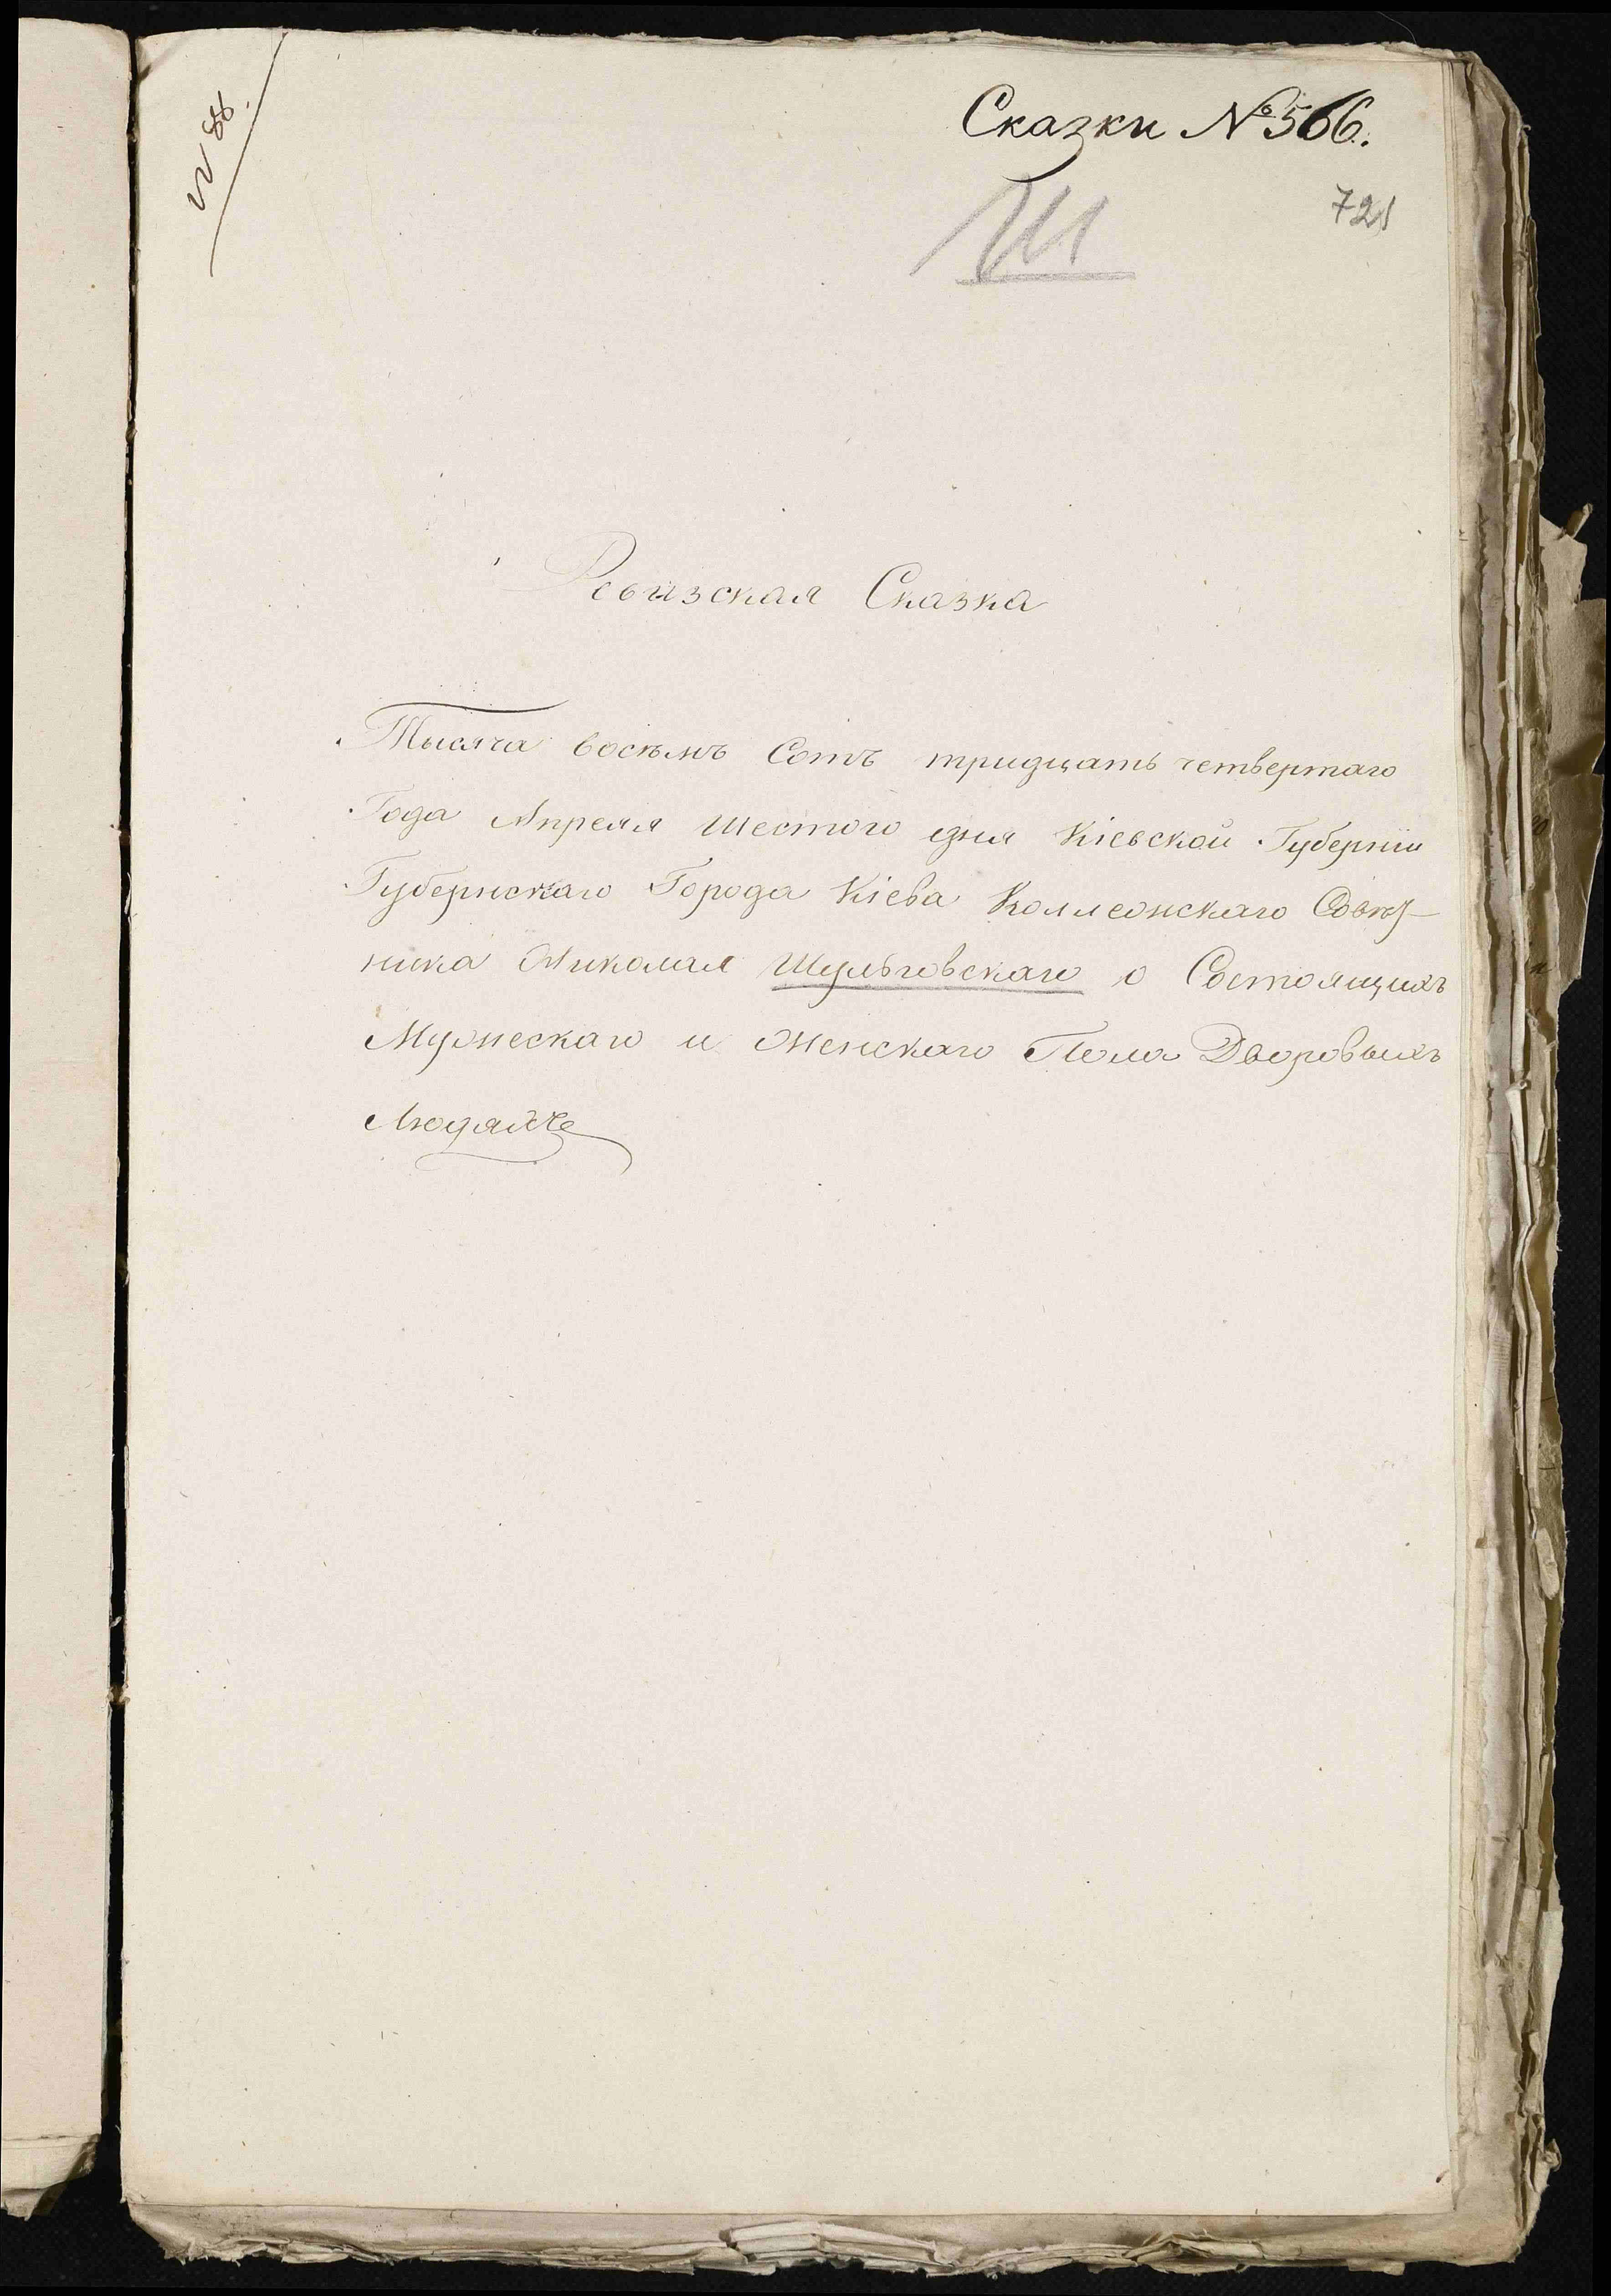 № 88.
Сказки № 566.
721
Ш
Ревизская Сказка
Тысяча восѣмъ Сотъ тридцать четвертаго
Года Апреля Шестого дня Кіевской Губерніи
Губернскаго Города Кіева Коллежскаго Совѣт-
ника Николая Шульговскаго о Состоящихъ
Мужескаго и Женскаго Пола Дворовыхъ
Людяхъ